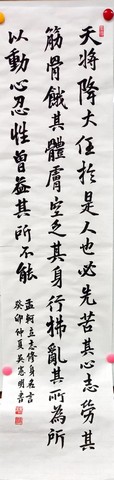 天將降大任於是人也必先苦其心志勞其
筋骨餓其體膚空乏其身行拂亂其所為所
以動心忍性曾益其所不能
孟軻立志修身名言
癸卯仲夏吳憲明書